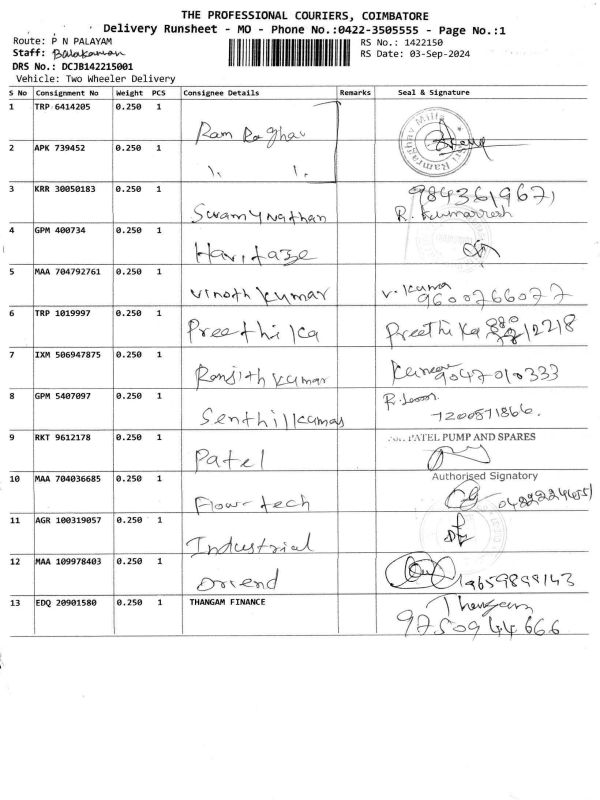 THE PROFESSIONAL COURIERS, COIMBATORE
Delivery Runsheet - MO - Phone No.:0422-3505555 - Page No.:1
Route: P N PALAYAM
RS No.: 1422150
Staff:
RS Date: 03-Sep-2024
DRS No.: DCJB142215001
Vehicle: Two Wheeler Delivery
S No Consignment No Weight PCS Consignee Details Remarks Seal & Signature
1 TRP 6414205 0.250 1 Ram Raghav
2 APK 739452 0.250 1
3 KRR 30050183 0.250 1 Swamynathan 9843619671
4 GPM 400734 0.250 1 Haritage
5 MAA 704792761 0.250 1 Vinoth kumar V. Kumar 9600766077
6 TRP 1019997 0.250 1 Preethika Preethika
7 IXM 506947875 0.250 1 Ranjith kumar 9047010333
8 GPM 5407097 0.250 1 Senthilkumar 7200871866.
9 RKT 9612178 0.250 1 Patel PATEL PUMP AND SPARES
Authorised Signatory
10 MAA 704036685 0.250 1 Flow-tech
11 AGR 100319057 0.250 1 Industrial
12 MAA 109978403 0.250 1 Oriend
13 EDQ 20901580 0.250 1 THANGAM FINANCE Thangam
9750944666